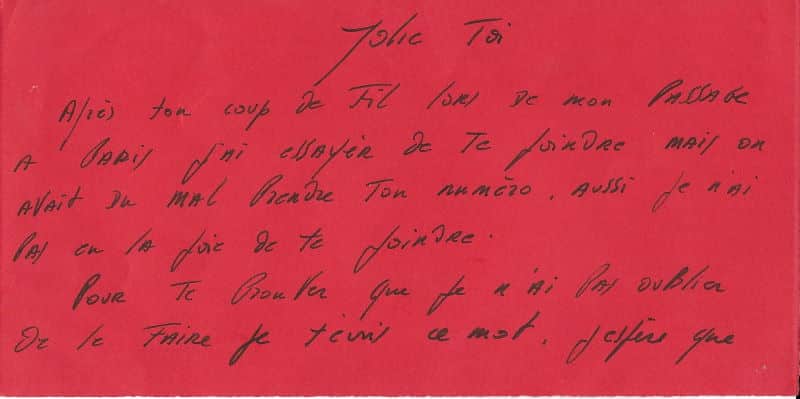 Jolie Toi
Après ton coup de Fil lors de mon PASSAGE
A PARIS j'ai essayér de Te joindre mais on
avait du mal Prendre Ton numéro. aussi je n'ai
Pas eu la joie de te joindre.
Pour Te Prouver que je n'ai Pas oublier
De le Faire je t'écris ce mot. j'espère que